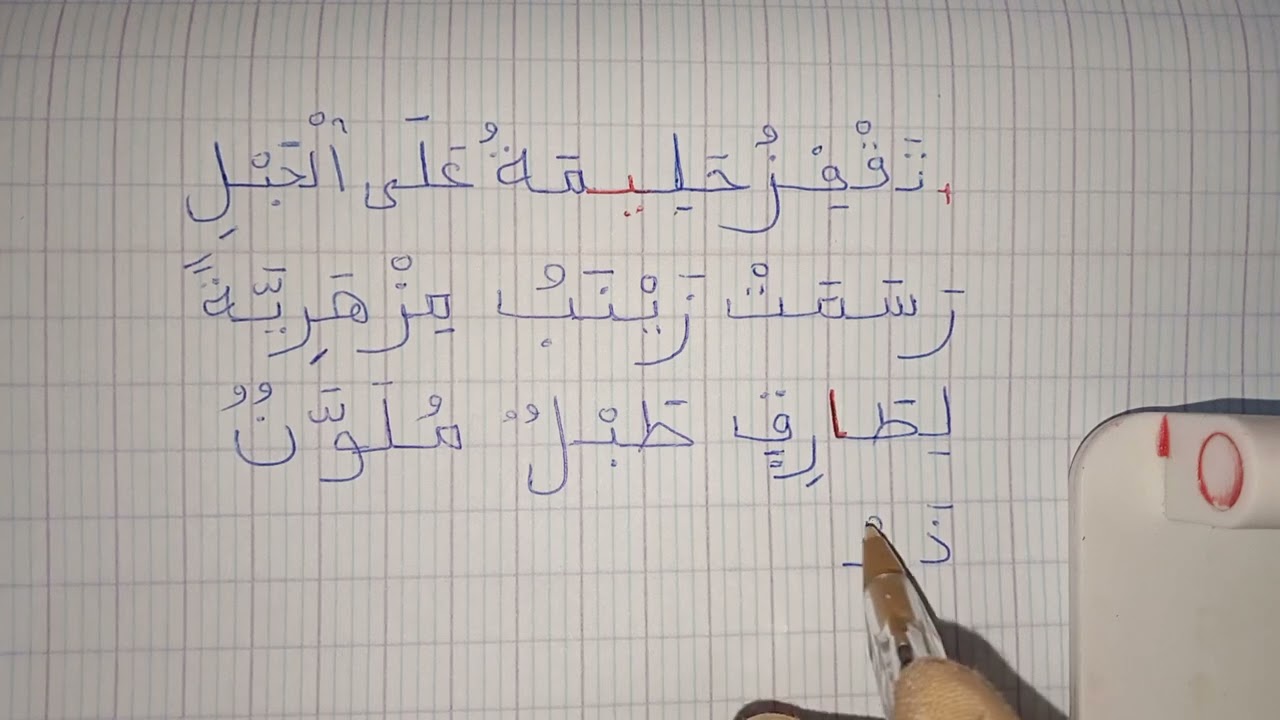 تَقْفِزُ حَلِيمَةُ عَلَى ٱلْحَبْلِ
رَسَمَتْ زَيْنَبُ مِزْهَرِيَّةً
لِطَارِقٍ طَبْلٌ مُلَوَّنٌ